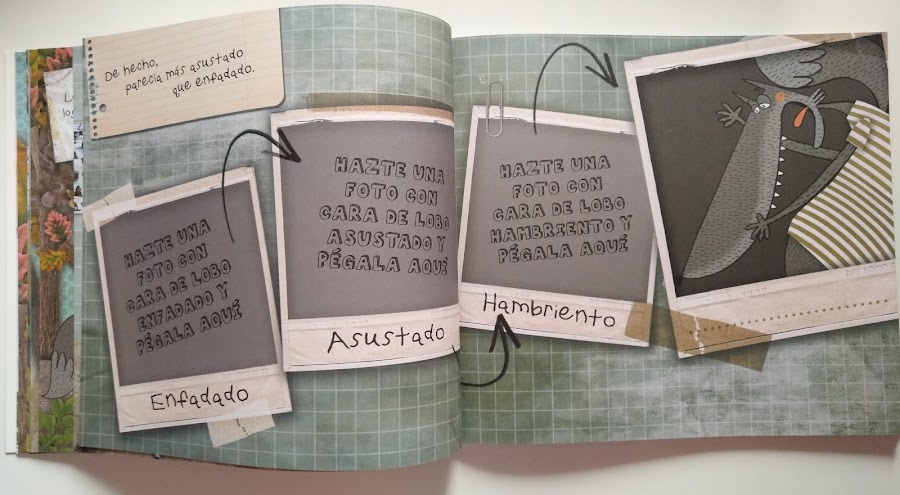 De hecho,
parecía más asustado
que enfadado.
HAZTE UNA
FOTO CON
CARA DE LOBO
ENFADADO Y
PÉGALA AQUÍ
Enfadado
HAZTE UNA
FOTO CON
CARA DE LOBO
ASUSTADO Y
PÉGALA AQUÍ
Asustado
HAZTE UNA
FOTO CON
CARA DE LOBO
HAMBRIENTO Y
PÉGALA AQUÍ
Hambriento